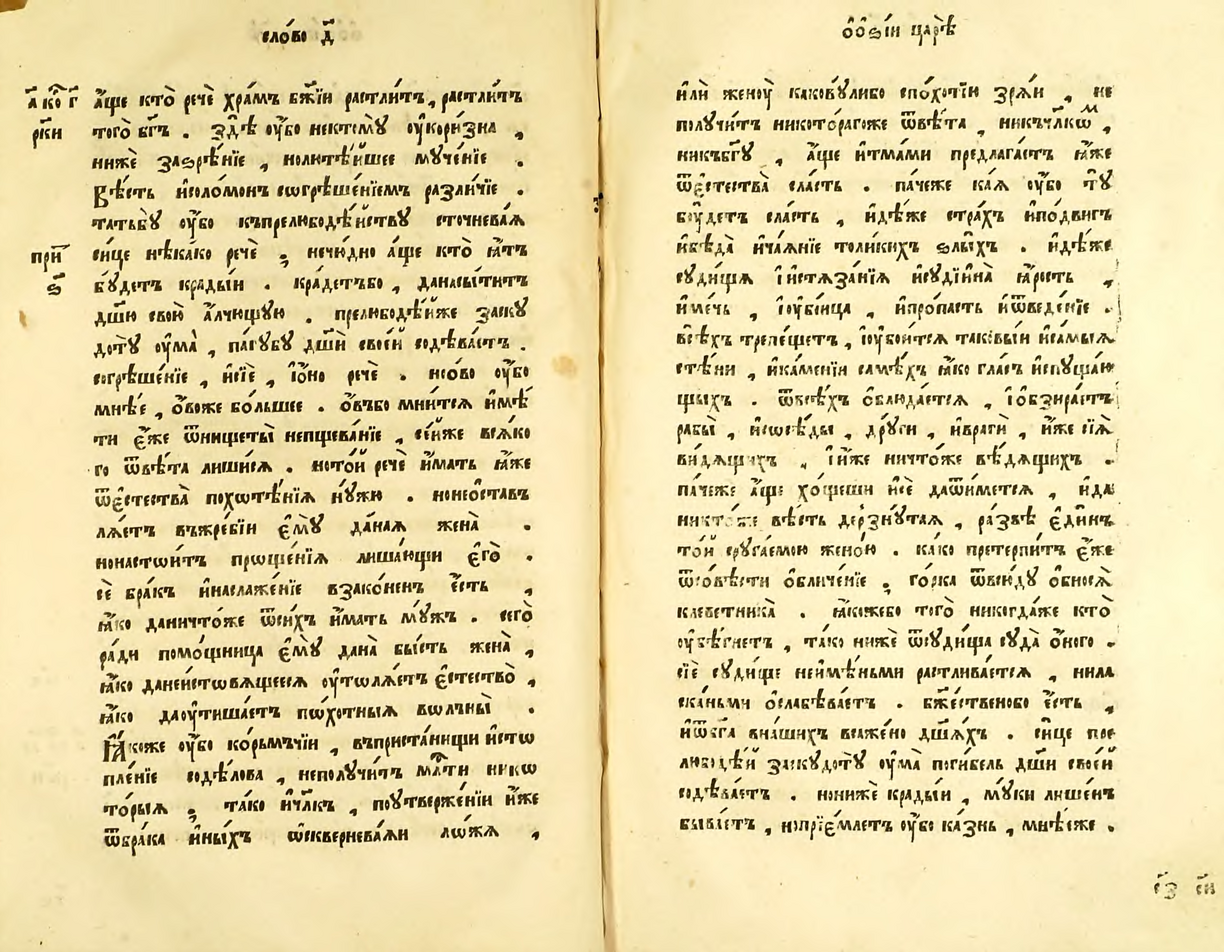 сло́во д҃
а҃ ко҇ г҃
ри҇ні
а҆́ще кто̀ речѐ хра́мъ бж҃їи растли́тъ, растли́тъ
того̀ бг҃ъ . здѣ̀ ᲂу҆́бо нектомꙋ̀ ᲂу҆кори́зна ,
нижѐ заꙁрѣ́нїе , нолитѣ́йшее мꙋче́нїе .
Вѣ́сть и҆соломо́нъ сѡгрѣше́нїемъ разли́чїе .
татьбꙋ̀ ᲂу҆́бо къпрелюбодѣ́йствꙋ сточнева́ѧ
при҇
ѕ҃
си́це нѣ́како речѐ ; нечю́дно а҆́ще кто̀ ꙗ҆́тъ
бꙋ́детъ кра́дыи . кра́детъбо , данасы́титъ
дш҃ю свою̀ а҆́лчющꙋю . прелюбодѣ́йже заскꙋ
дотꙋ̀ ᲂу҆ма̀ , па́гꙋбꙋ дш҃и свое́й содѣва́етъ .
согрѣше́нїе , и҆сїѐ , і҆о҆́но речѐ . но́ово ᲂу҆́бо
мнѣ́е , о҆́воже бо́льшее . о҆́въбо мни́тсѧ и҆мѣ́
ти є҆́же ѿнищеты̀ непщева́нїе , се́йже всѧ́ко
го ѿвѣ́та лиши́сѧ . но́то́й речѐ и҆́мать ꙗ҆́же
ѿє҆стества̀ похѡтѣ́нїѧ нꙋ́жи . нонеѡ҆ста́въ
лѧ́етъ въжре́бїи є҆мꙋ̀ да́наѧ жена̀ .
нонастои́тъ проще́нїѧ лиша́ющи є҆го̀ .
сѐ бра́къ и҆наслаже́нїе взако́ненъ є҆́сть ,
ꙗ҆́ко даничто́же ѿси́хъ и҆́мать мꙋ́жъ . сего̀
ра́ди помо́щница є҆мꙋ̀ дана̀ бы́сть жена̀ ,
ꙗ҆́ко данеи҆стовѧ́щеесѧ ᲂу҆толѧ́етъ є҆стество̀ ,
ꙗ҆́ко даᲂу҆тиша́етъ по́хотныѧ волны̀ .
Ꙗ҆́коже ᲂу҆́бо ко́рьмъчїи , въприста́нищи и҆сто
пле́нїе содѣ́лова , неполꙋ́читъ мл҇ти нико
то́рыѧ ; та́ко и҆чл҃къ , поᲂу҆твержде́нїи и҆́же
ѿбра́ка и҆ны́хъ ѡ҆скверне́ваѧи ло́жѧ ,
о҆́ о҆зі́и царѣ̀
и҆лѝ женоу̀ каковꙋ́либо спо́хотїи зрѧ́и , не
полꙋ́читъ никото́рагоже ѿвѣ́та , никъчл҃кѡм ,
никъбг҃ꙋ , а҆́ще и҆тма́ми предлага́етъ ꙗ҆́же
ѿє҆стества̀ сла́сть . па́чеже ка́ѧ ᲂу҆́бо тꙋ̀
бꙋ́детъ сла́сть , и҆дѣ́же стра́хъ и҆по́двигъ
и҆бѣда̀ и҆ча́ѧнїе толи́кихъ ѕлы́хъ . и҆дѣ́же
сꙋди́щѧ і҆и҆стѧза́нїѧ и҆сꙋдїи́на ꙗ҆́рость ,
и҆ме́чь , і҆ᲂу҆бі́ица , и҆про́пасть и҆ѿведе́нїе .
всѣ́хъ трепе́щетъ , і҆ᲂу҆бои́тсѧ таковы́и и҆самы́ѧ
стѣ́ни , и҆ка́менїи самѣ́хъ ꙗ҆́ко гла́съ и҆спꙋща́ю
щыхъ . ѿвсѣ́хъ о҆блюда́етсѧ , і҆о҆бзира́етъ
рабы̀ , и҆сꙋсѣ́ды , дрꙋ́ги , и҆врагѝ , и҆́же сїѧ̀
ви́дѧщихъ , і҆и҆́же ничто́же вѣ́дѧщихъ .
па́чеже а҆́ще хо́щеши и҆сѐ даѿи́метсѧ , и҆да
никто́же вѣ́сть дерзнꙋ́таѧ , ра́звѣ є҆ди́нъ
то́й срꙋга́емою жено́ю . ка́ко претерпи́тъ є҆́же
ѿсо́вѣсти о҆бличе́нїе ; го́рка ѿвсю́дꙋ о҆бносѧ̀
клеветника̀ . ꙗ҆́коже́бо того̀ никогда́же кто̀
ᲂу҆бѣ́гнетъ , та́ко нижѐ ѿсꙋди́ща сꙋда̀ о҆́ного .
сїѐ сꙋди́ще неи҆мѣ́ньми растлива́етсѧ , нила
ска́ньми о҆слабѣва́етъ . бж҃ествено́бо є҆́сть ,
и҆ѿбг҃а вна́шихъ всаже́но дш҃а́хъ . си́це пре
любодѣ́й заскꙋдотꙋ̀ ᲂу҆ма̀ поги́бель дш҃и свое́й
содѣва́етъ . нонижѐ кра́дыи , мꙋ́ки лише́нъ
быва́етъ , нопрїе́млетъ ᲂу҆́бо ка́знь , мнѣ́еже .
с҃з с҃и